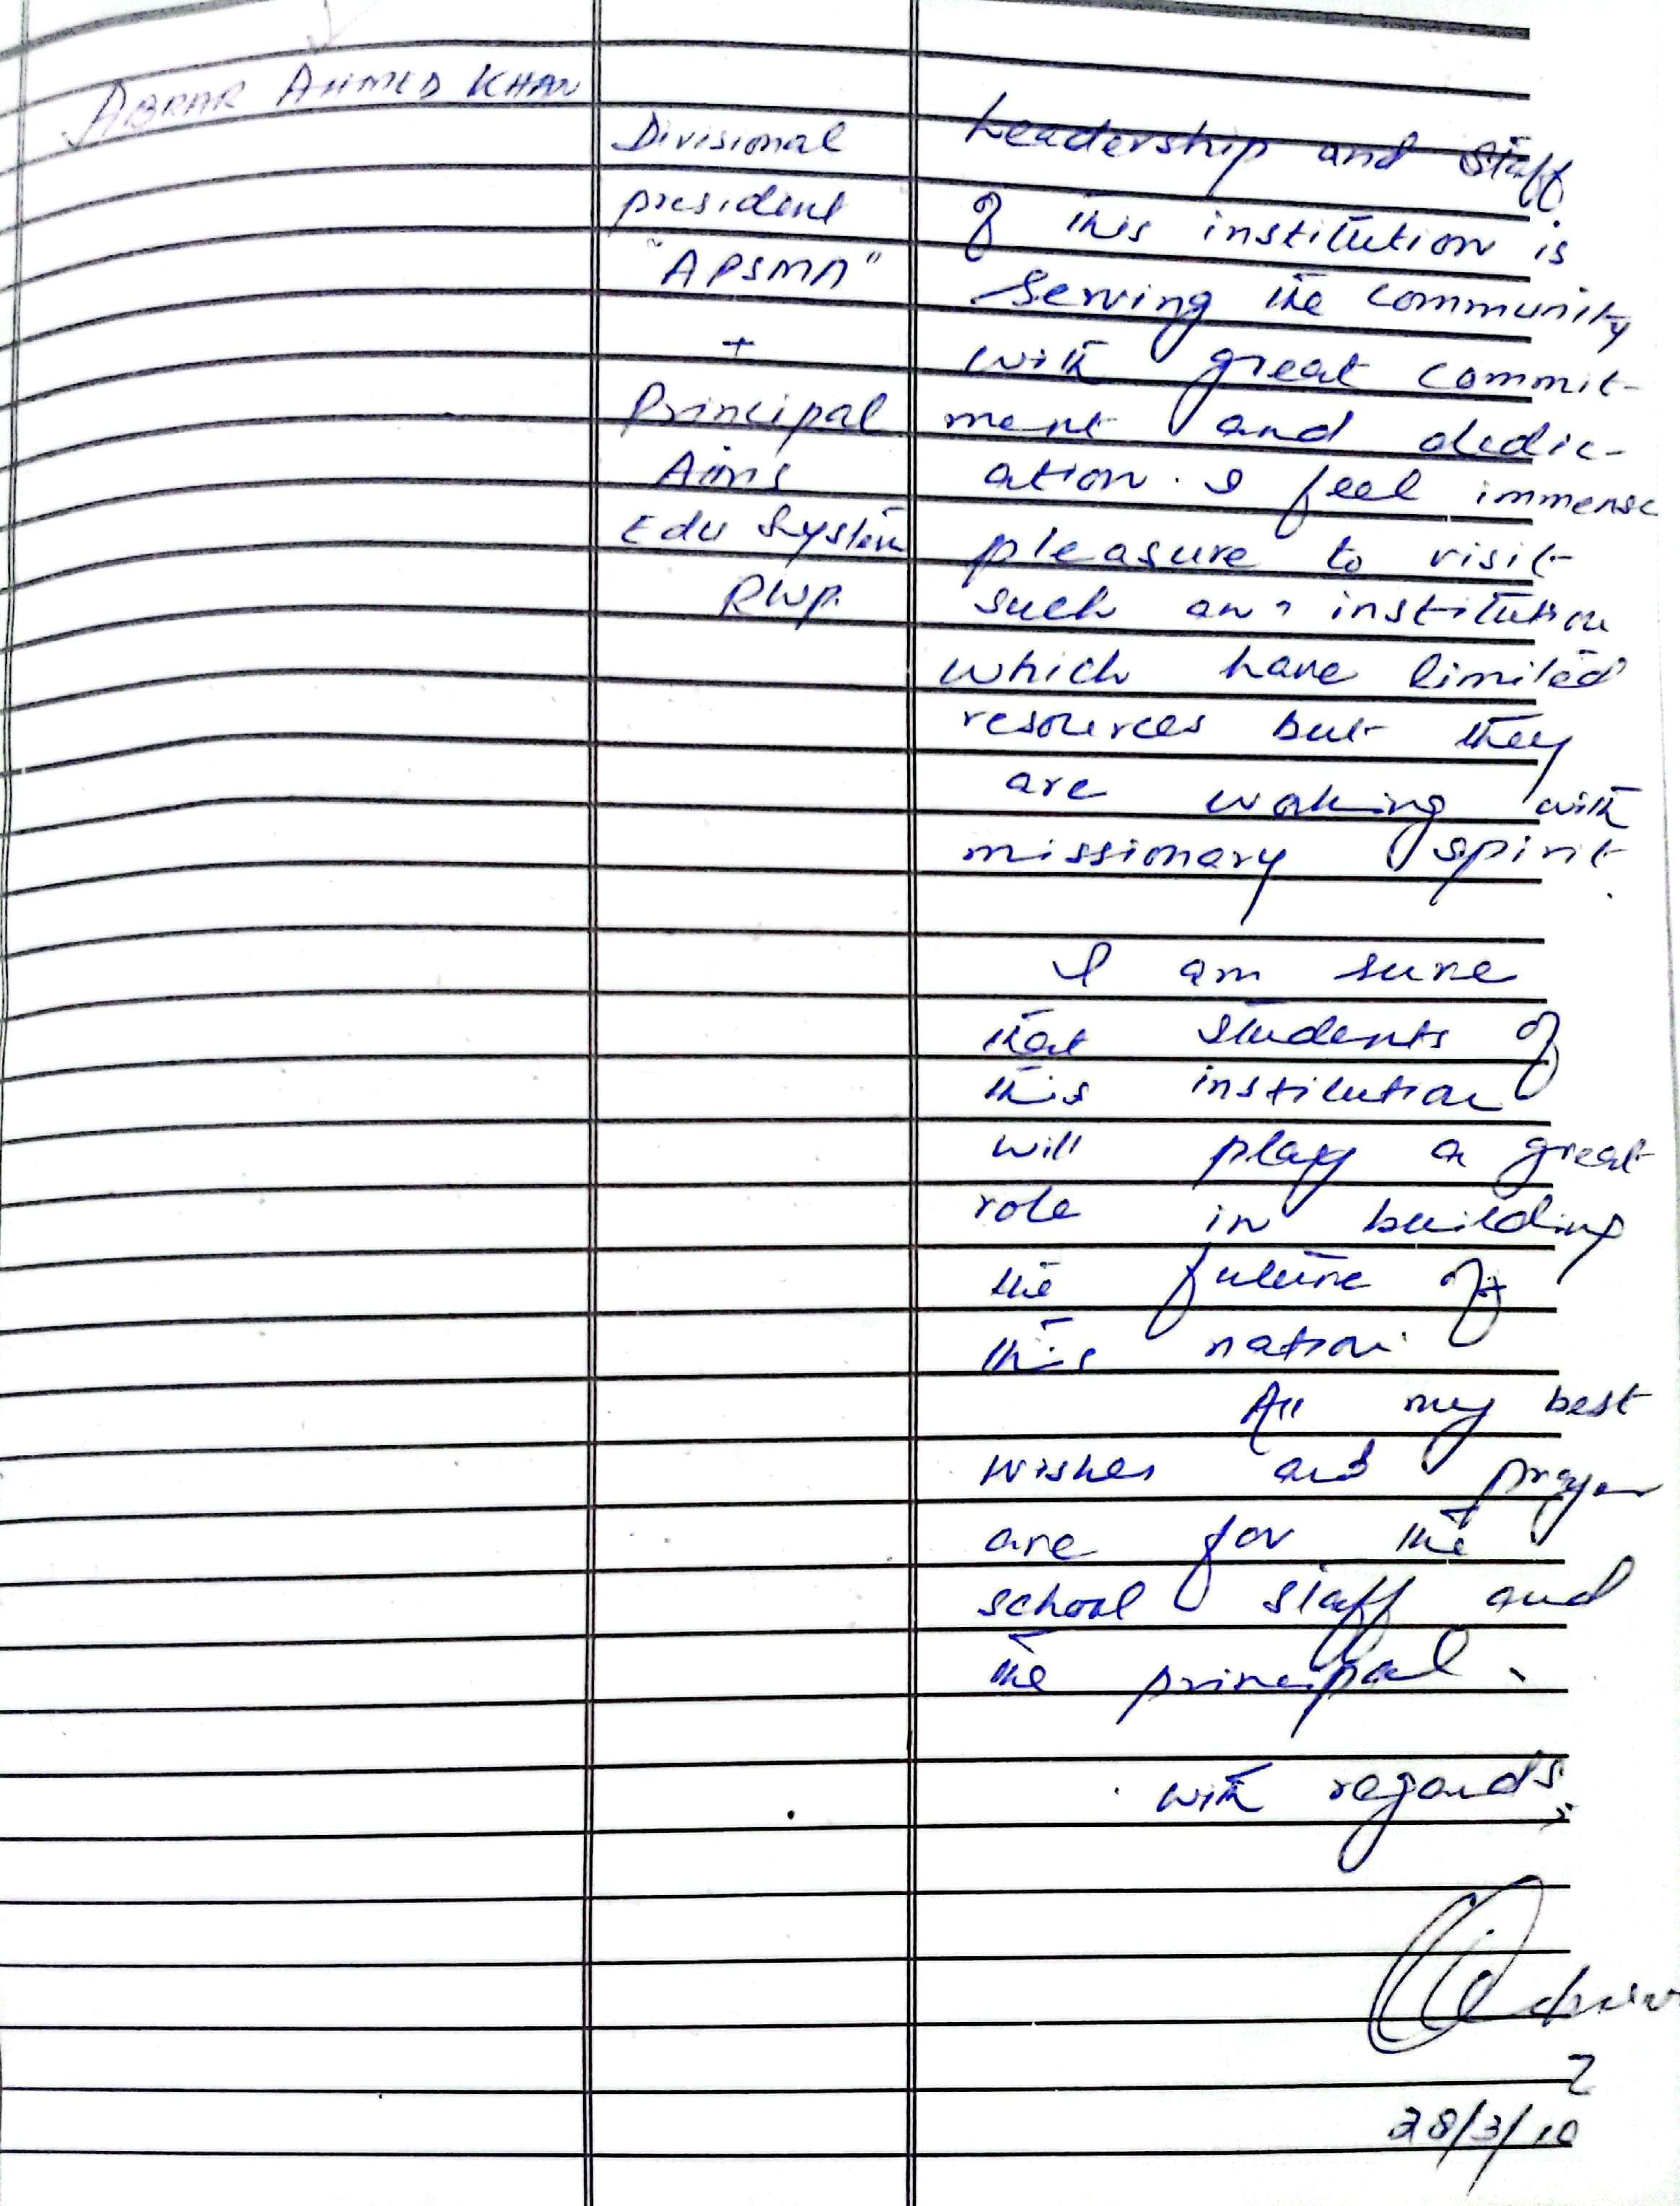 ABRAR AHMED KHAN
Divisional
president
"APSMA"
+
Principal
Aims
Edu System
RWP.
Leadership and staff
of this institution is
serving the community
with great commit-
ment and dedic-
ation. I feel immense
pleasure to visit
such an institution
which have limited
resources but they
are working with
missionary spirit.
I am sure
that students of
this institution
will play a great
role in building
the future of
this nation.
All my best
wishes and prayer
are for the
school staff and
the principal.
with regards,
28/3/10